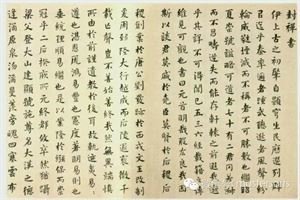 封禪書
伊上古之初肇自顥穹生民歷選列辟
以迄乎秦率邇者踵武聽逖者風聲紛
輪威蕤堙滅而不稱者不可勝數繼昭
夏崇號謚略可道者七十有二君罔若淑
而不昌疇逆失而能存軒轅之前遐哉邈
乎其詳不可得聞已五三六經載籍之傳
維見可觀也書曰元首明哉股肱良哉因
斯以談君莫盛於堯臣莫賢於后稷后
稷創業於唐公劉發跡於西戎文王改制
爰周郅隆大行越成而后陵遲衰微千
載亡聲豈不善始善終哉然無異端慎
所由於前謹遺教於後耳故軌迹夷易易
遵也湛恩厖鴻易豐也憲度著明易則也
垂統理順易繼也是以業隆於繈保而崇
冠乎二后揆厥所元終都攸卒然猶躡
梁父登大山建顯號施尊名大漢之德
逢涌原泉沕潏曼羨旁魄四塞雲布